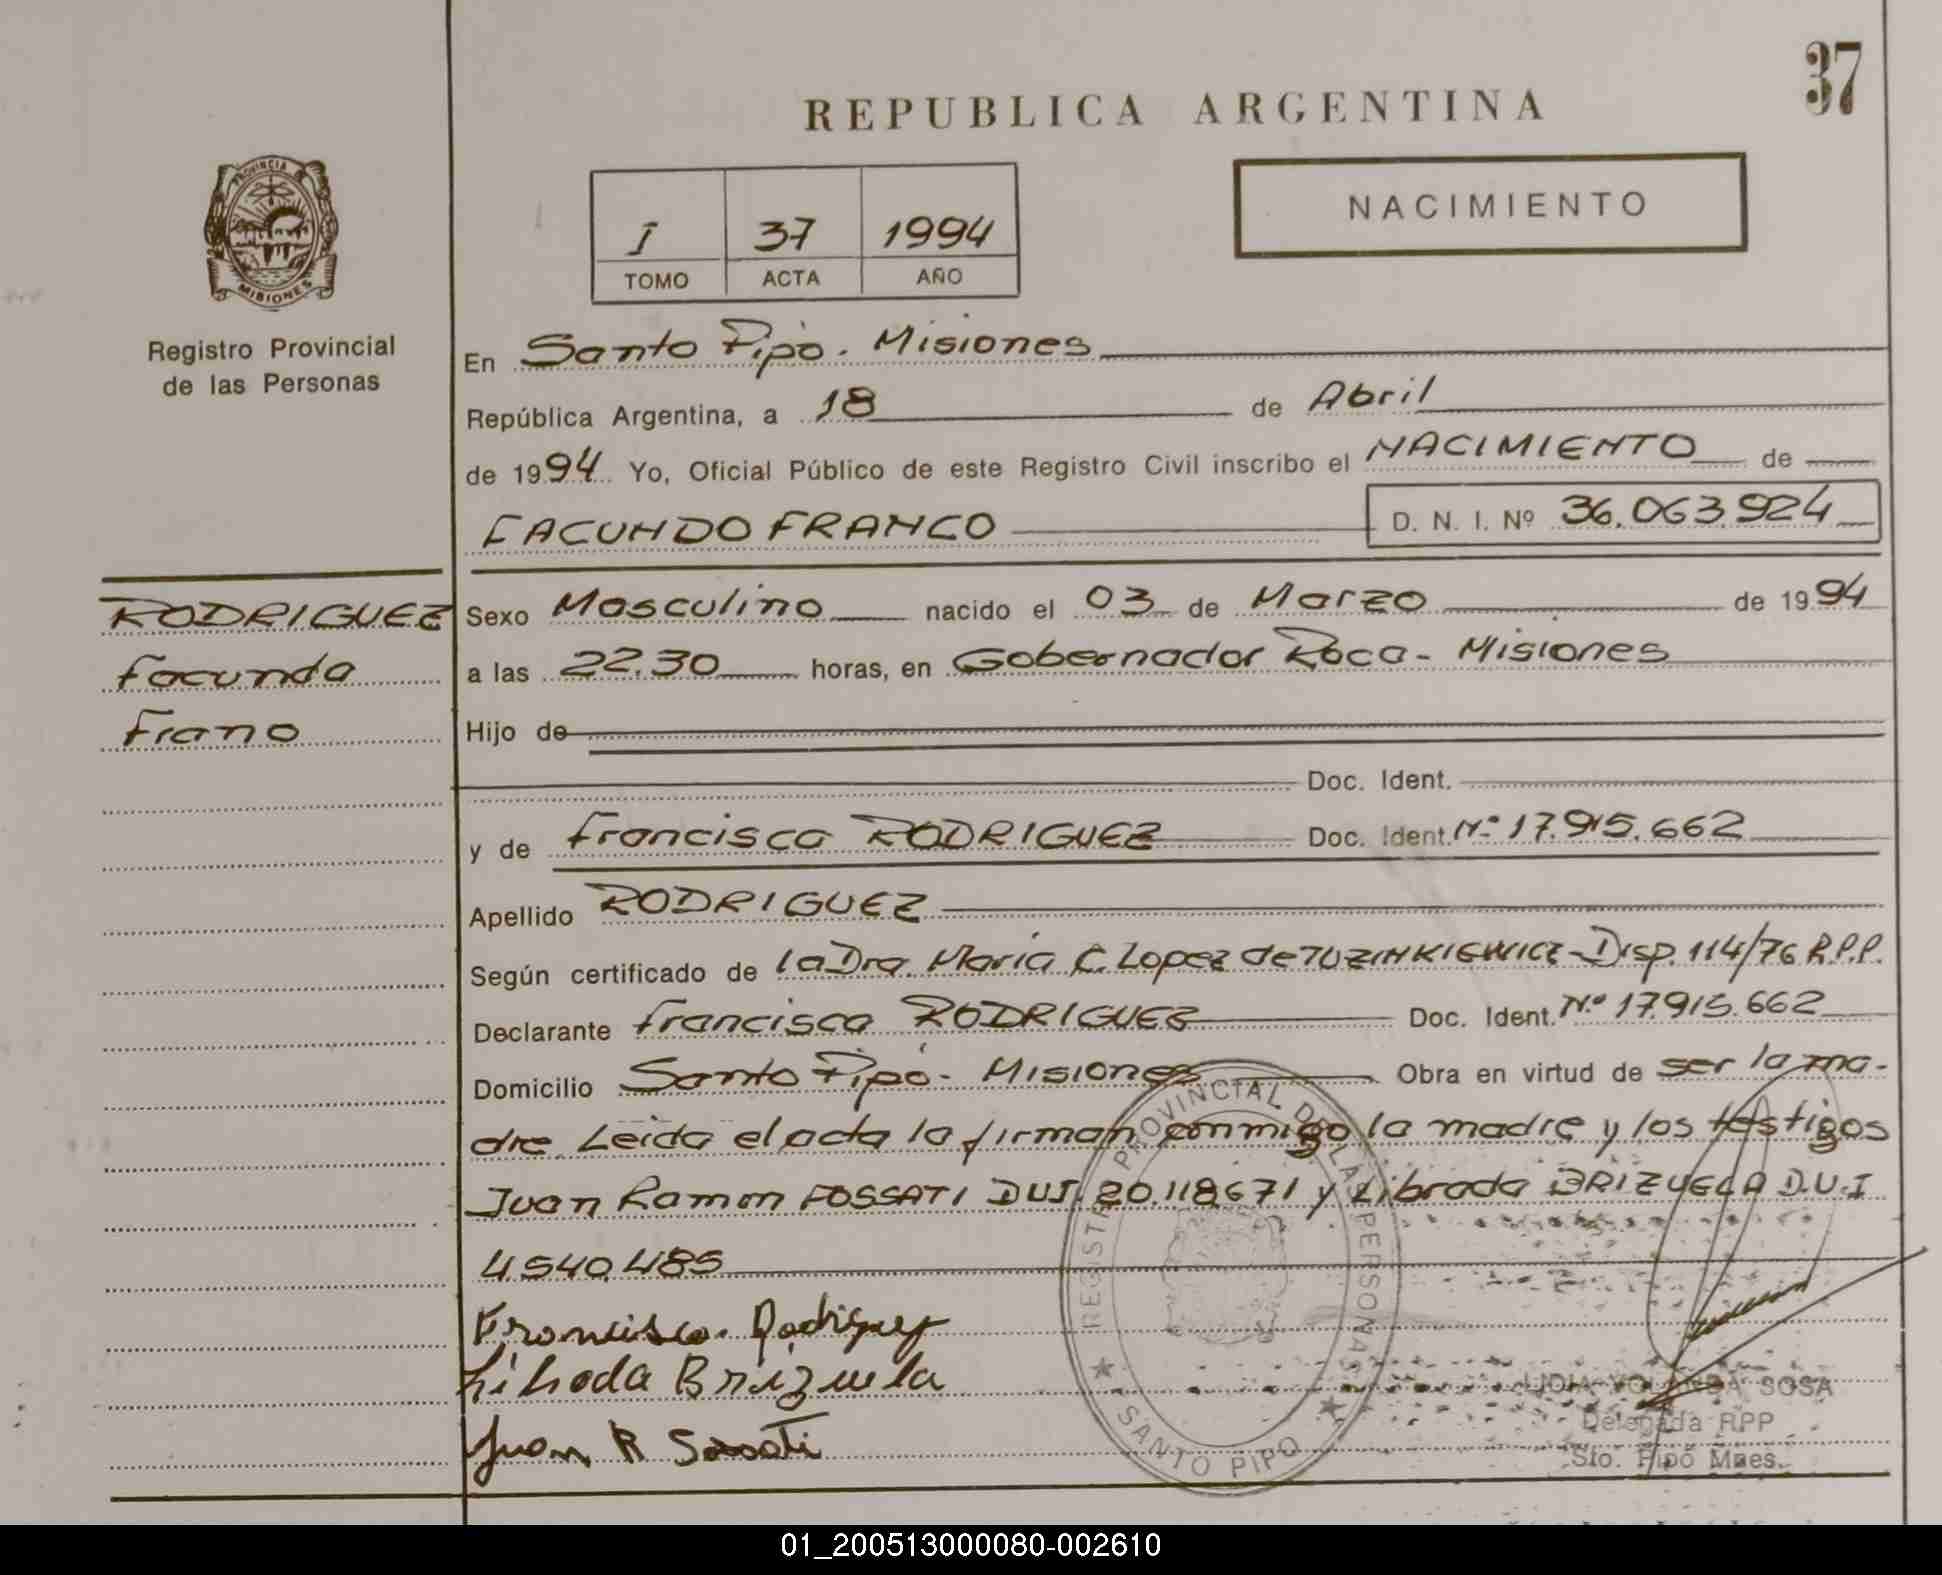 37
REPUBLICA ARGENTINA
PROVINCIA DE
MISIONES
Registro Provincial
de las Personas
I 37 1994
TOMO ACTA AÑO
NACIMIENTO
En Santo Pipó. Misiones
República Argentina, a 18 de Abril
de 1994 Yo, Oficial Público de este Registro Civil inscribo el NACIMIENTO de
FACUNDO FRANCO D. N. I. Nº 36.063.924
RODRIGUEZ
Facundo
Frano
Sexo Masculino nacido el 03 de Marzo de 1994
a las 22.30 horas, en Gobernador Roca - Misiones
Hijo de
Doc. Ident.
y de Francisca RODRIGUEZ Doc. Ident. Nº 17.915.662
Apellido RODRIGUEZ
Según certificado de la Dra. María C. Lopez de TUZINKIEWICZ - Disp. 114/76 R.P.P.
Declarante Francisca RODRIGUEZ Doc. Ident. Nº 17.915.662
Domicilio Santo Pipó - Misiones Obra en virtud de ser la ma-
dre. Leida el acta la firman conmigo la madre y los testigos
Juan Ramon FOSSATI DUI. 20.118.671 y Librada BRIZUELA D.U.I
4.540.485
Francisca Rodriguez
Libada Brizuela
Juan R
REGISTRO PROVINCIAL DE LAS PERSONAS
SANTO PIPO
LIDIA YOLANDA SOSA
Delegada RPP
Sto. Pipó Mnes.
01_200513000080-002610